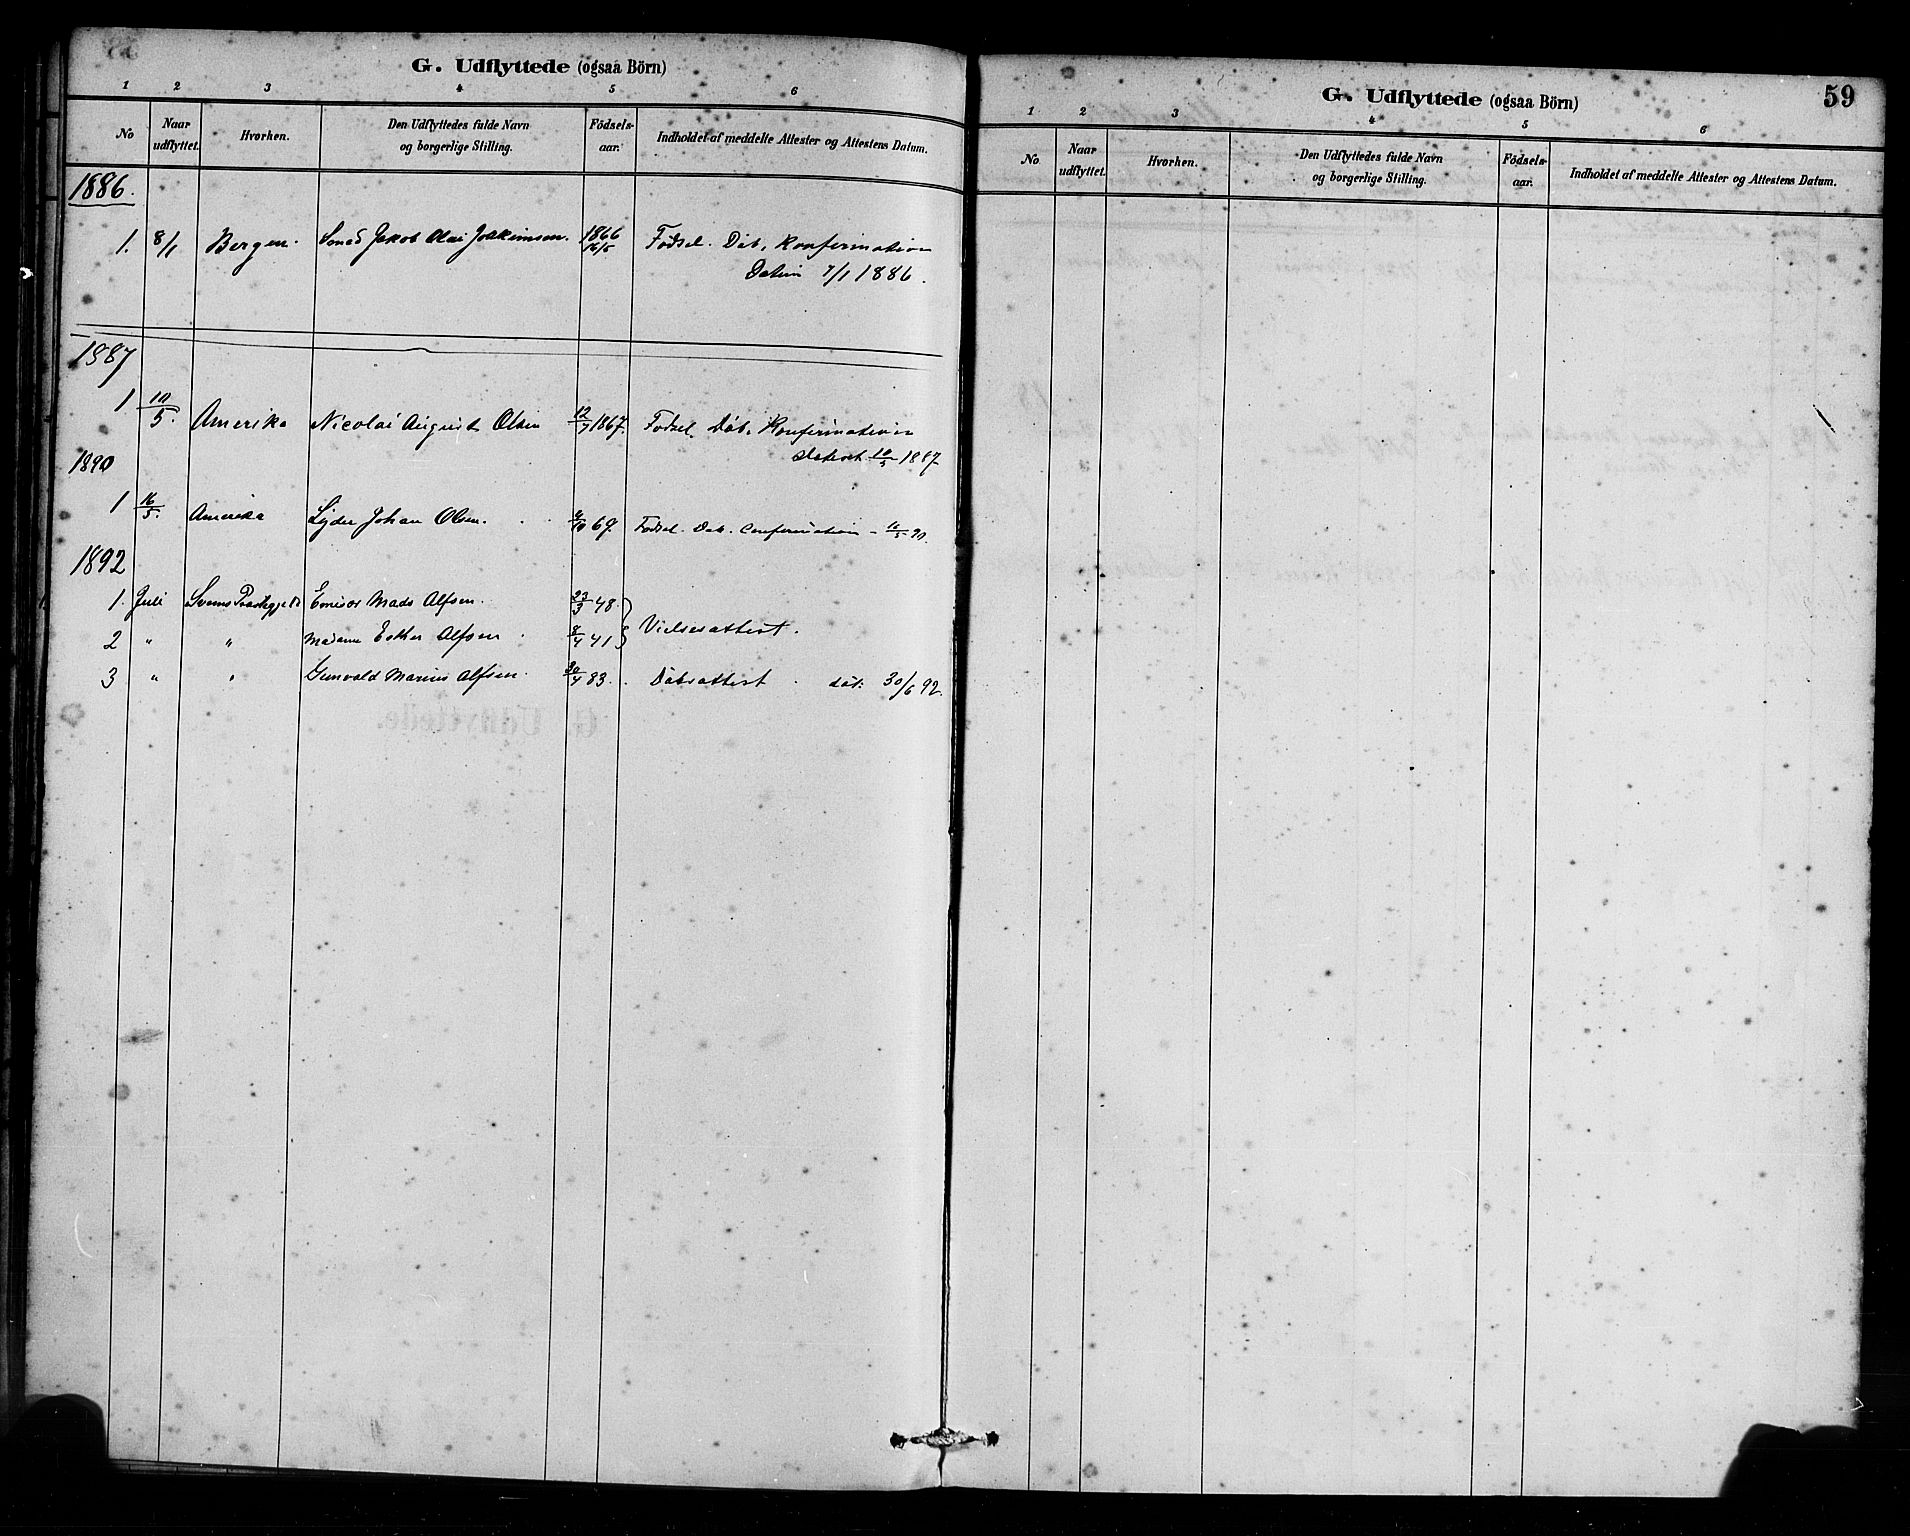 G. Udflyttede (ogsaa Börn)
1 2 3 4 5 6
No Naar udflyttet. Hvorhen. Den Udflyttedes fulde Navn og borgerlige Stilling. Födsels-aar. Indholdet af meddelte Attester og Attestens Datum.
1886.
1. 8/1 Bergen. Jakob Olai Joakimsen. 1866 16/5 Fødsel. Dåb, Konfirmation
Datum 7/1 1886.
1887
1 10/5. Amerika Nicolai August Olsen 12/7 1867. Fødsel. Dåb, Konfirmation
dateret 10/5 1887
1890
1 16/5. Amerika Johan Olsen. 69 Fødsel. Dåb. Confirmation - 16/5 90.
1892
1. Juli Svems Præstegjeld Mads Alfsen. 23/3 48.
2 " " Madame Esther Alfsen. 8/4 41 Vielsesattest.
3 " " Gunvald Marius Alfsen. 30/4 83. Dåbsattest. dat: 30/6 92.
G. Udflyttede (ogsaa Börn) 59
1 2 3 4 5 6
No Naar udflyttet. Hvorhen. Den Udflyttedes fulde Navn og borgerlige Stilling. Födsels-aar. Indholdet af meddelte Attester og Attestens Datum.